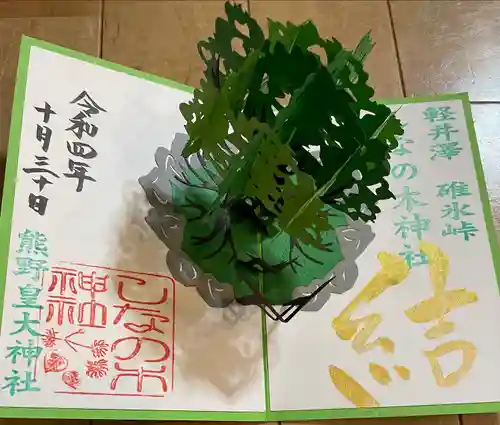 軽井澤 碓氷峠
なの木神社
結
令和四年
十月三十日
しなの木
神社
熊野皇大神社